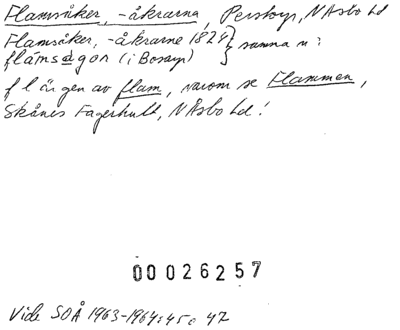 Flamsåker, -åkrarna, Perstorp, NÅsbo hd
Flamsåker, -åkrarne 1824 } samma n:
flämsagon (i Bosarp)
fl är gen av flam, varom se Flammen,
Skånes Fagerhult, NÅsbo hd!
00026257
Vide SOÅ 1963-1964: 45 o 47